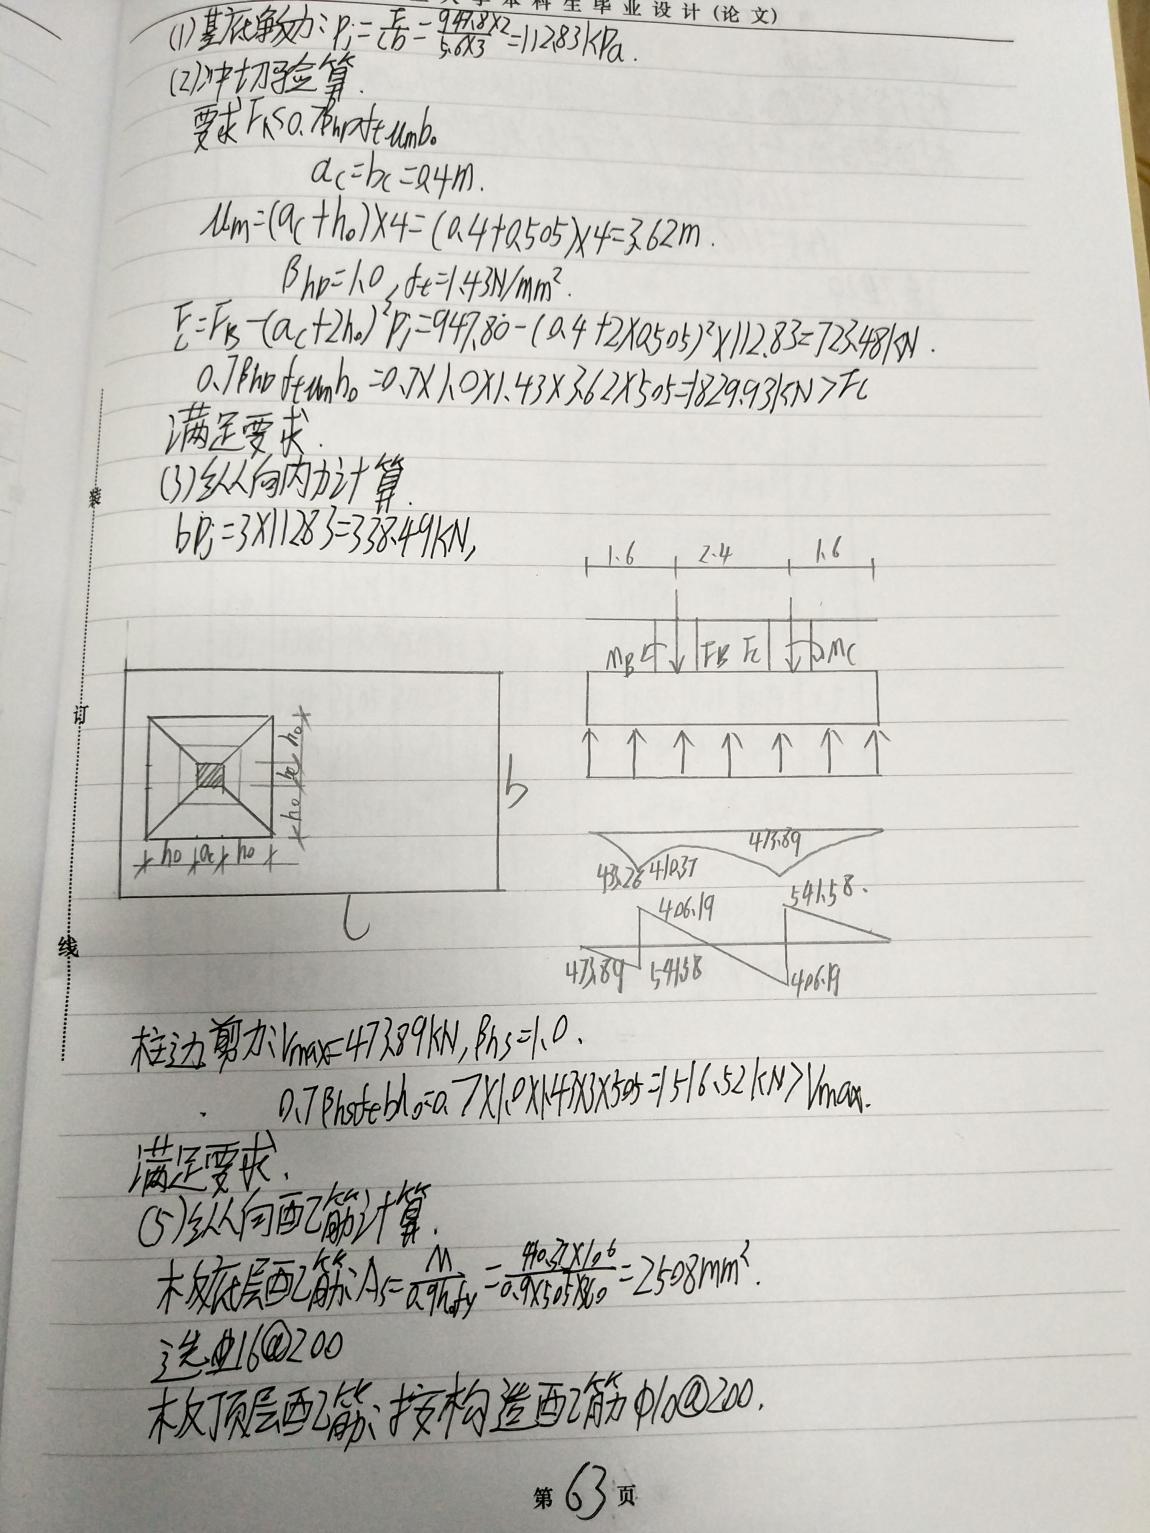 本科生毕业设计(论文)
(1)基底净反力: Pj=F/lb=947.8×2/5.6×3=112.83kPa.
(2)冲切验算.
要求Fl≤0.7βhpftumb0
ac=bc=0.4m.
um=(ac+h0)×4=(0.4+0.505)×4=3.62m.
βhp=1.0, ft=1.43N/mm².
FL=FB-(ac+2h0)²Pj=947.80-(0.4+2×0.505)²×112.83=723.48kN.
0.7βhpftumh0=0.7×1.0×1.43×3.62×505=1829.93kN>FL
满足要求.
(3)纵向内力计算.
bPj=3×112.83=338.49kN,
1.6 2.4 1.6
MB FB Fc Mc
h0 bc h0
h0 ac h0
b
l
473.89
433.26 410.37
406.19 541.58.
473.89 541.58 406.19
柱边剪力:Vmax=473.89kN, βhs=1.0.
0.7βhsftbh0=0.7×1.0×1.43×3×505=1516.52kN>Vmax.
满足要求.
(5)纵向配筋计算.
板底层配筋: As=M/0.9h0fy=410.37×10⁶/0.9×505×360=2508mm².
选⏀16@200
板顶层配筋: 按构造配筋φ10@200.
装
订
线
第63页